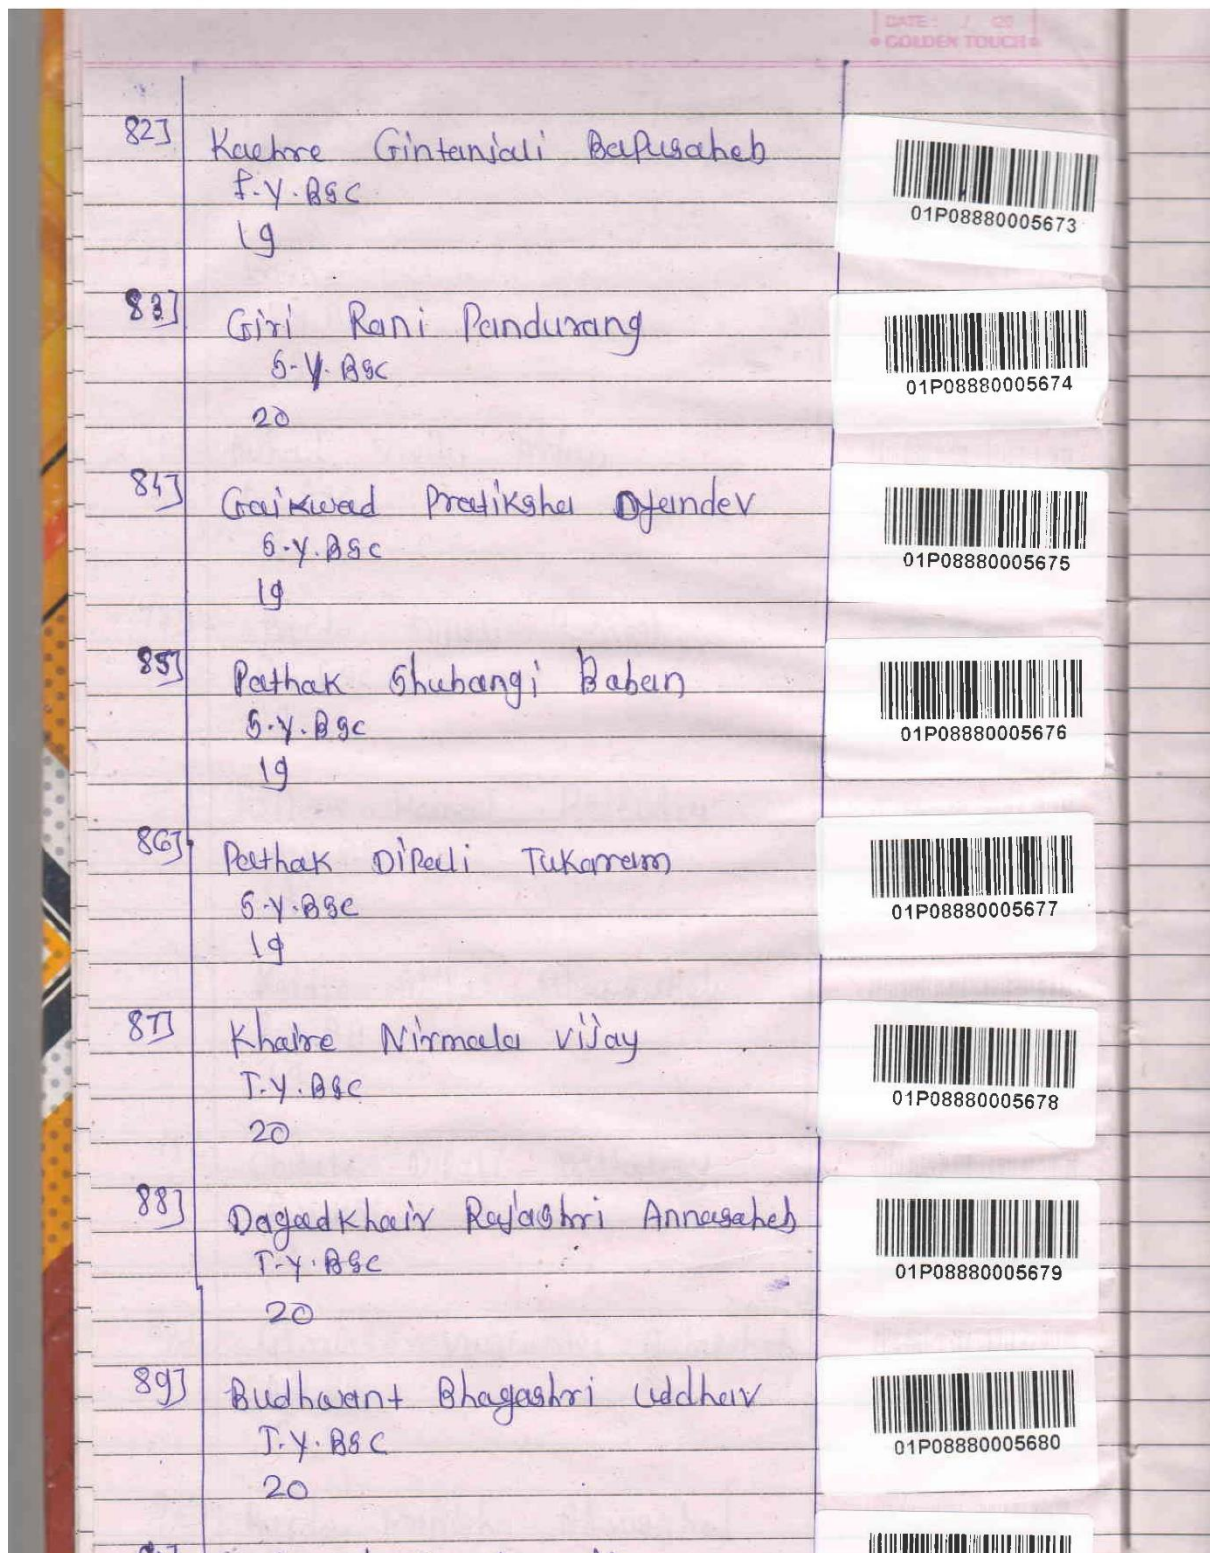 DATE: / 20
GOLDEN TOUCH
82] Kaehre Gintanjali Bapusaheb
F.Y.BSC
19
01P08880005673
83] Giri Rani Pandurang
S.Y.BSC
20
01P08880005674
84] Gaikwad Pratiksha Dyandev
S.Y.BSC
19
01P08880005675
85] Pathak Shubangi Baban
S.Y.BSC
19
01P08880005676
86] Pathak Dipali Tukaram
S.Y.BSC
19
01P08880005677
87] Khaire Nirmala Vijay
T.Y.BSC
20
01P08880005678
88] Dagadkhair Rajashri Annasaheb
T.Y.BSC
20
01P08880005679
89] Budhwant Bhagashri Uddhav
T.Y.BSC
20
01P08880005680